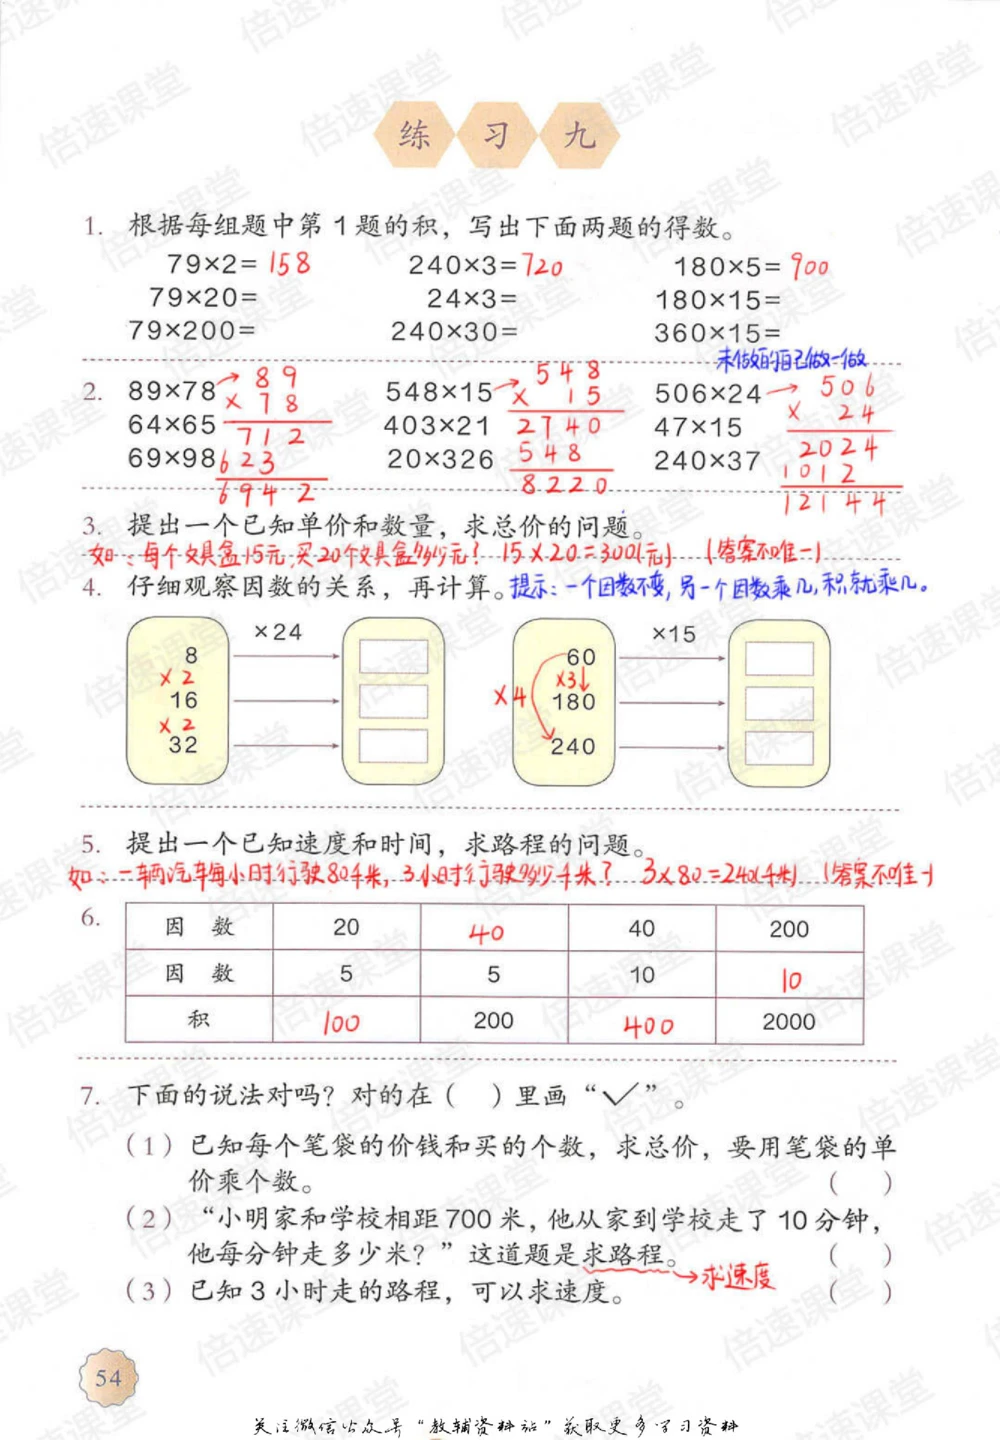 练习九
1. 根据每组题中第1题的积，写出下面两题的得数。
79×2=158 240×3=720 180×5=900
79×20= 24×3= 180×15=
79×200= 240×30= 360×15=
未做的自己做一做
2. 89×78→ 89 548×15→ 548 506×24→ 506
× 78 × 15 × 24
64×65 403×21 47×15
712 2740 2024
69×98 20×326 240×37
623 548 1012
6942 8220 12144
3. 提出一个已知单价和数量，求总价的问题。
如：每个文具盒15元，买20个文具盒多少元？ 15×20=300(元) (答案不唯一)
4. 仔细观察因数的关系，再计算。提示：一个因数不变，另一个因数乘几，积就乘几。
×24 ×15
8 60
×2 ×3
16 ×4 180
×2
32 240
5. 提出一个已知速度和时间，求路程的问题。
如：一辆汽车每小时行驶80千米，3小时行驶多少千米？ 3×80=240(千米) (答案不唯一)
6. 因 数 20 40 40 200
因 数 5 5 10 10
积 100 200 400 2000
7. 下面的说法对吗？对的在（ ）里画“✓”。
（1）已知每个笔袋的价钱和买的个数，求总价，要用笔袋的单
价乘个数。 （ ）
（2）“小明家和学校相距700米，他从家到学校走了10分钟，
他每分钟走多少米？”这道题是求路程。 （ ）
→求速度
（3）已知3小时走的路程，可以求速度。 （ ）
54
关注微信公众号“教辅资料站”获取更多学习资料
倍速课堂